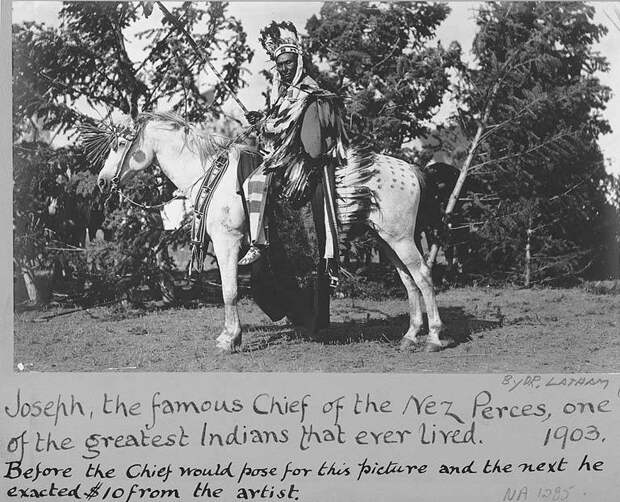 By DR. LATHAM
Joseph, the famous Chief of the Nez Perces, one
of the greatest Indians that ever lived. 1903.
Before the Chief would pose for this picture and the next he
exacted $10 from the artist.
NA 1285.